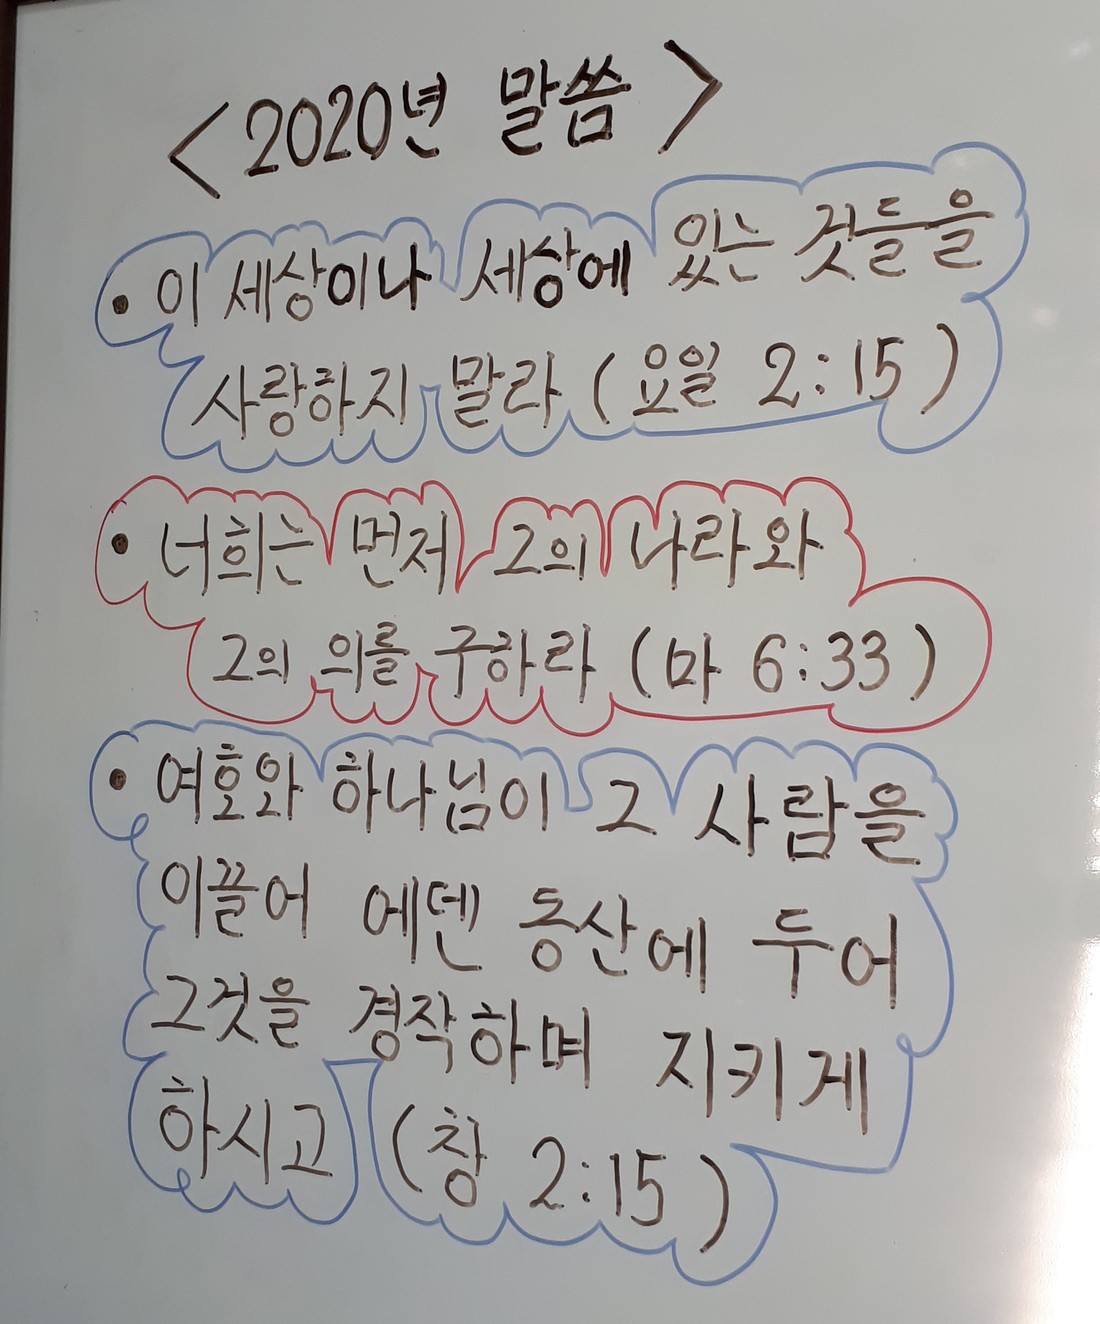 <2020년 말씀>
• 이 세상이나 세상에 있는 것들을
사랑하지 말라 (요일 2:15)
• 너희는 먼저 그의 나라와
그의 의를 구하라 (마 6:33)
• 여호와 하나님이 그 사람을
이끌어 에덴 동산에 두어
그것을 경작하며 지키게
하시고 (창 2:15)